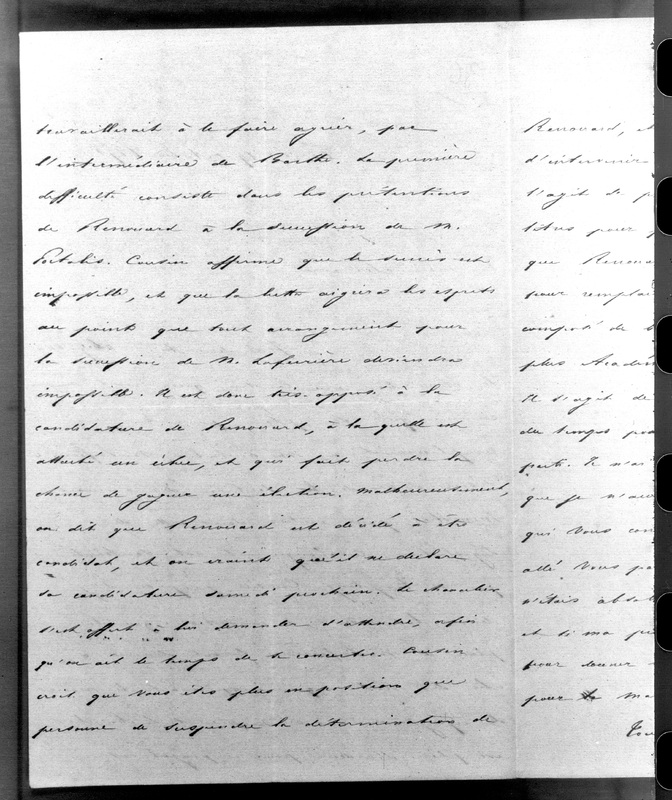 travaillerait à le faire agréer, par
l'intermédiaire de Barthe. La première
difficulté consiste dans les prétentions
de Renouard à la succession de M.
Portalis. Cousin affirme que le succès est
impossible, et que la lutte aigrira les esprits
au point que tout arrangement pour
la succession de M. Laferrière deviendra
impossible. Il est donc très opposé à la
candidature de Renouard, à laquelle est
attaché un échec, et qui fait perdre la
chance de gagner une élection. Malheureusement,
on dit que Renouard est décidé à être
candidat, et on craint qu'il ne déclare
sa candidature samedi prochain. Le chancelier
s'est offert à lui demander d'attendre, afin
qu'on ait le temps de se concerter. Cousin
croit que vous êtes plus en position que
personne de suspendre la détermination de
Renouard, et
d'intervenir
s'agit de p
titres pour
que Renoua
pour remplac
composé de
plus Académ
Il s'agit de
du temps pou
parti. Je n'ai
que je n'au
qui vous con
allé vous pa
n'étais absol
et si ma pr
pour donner
pour ma
Tou